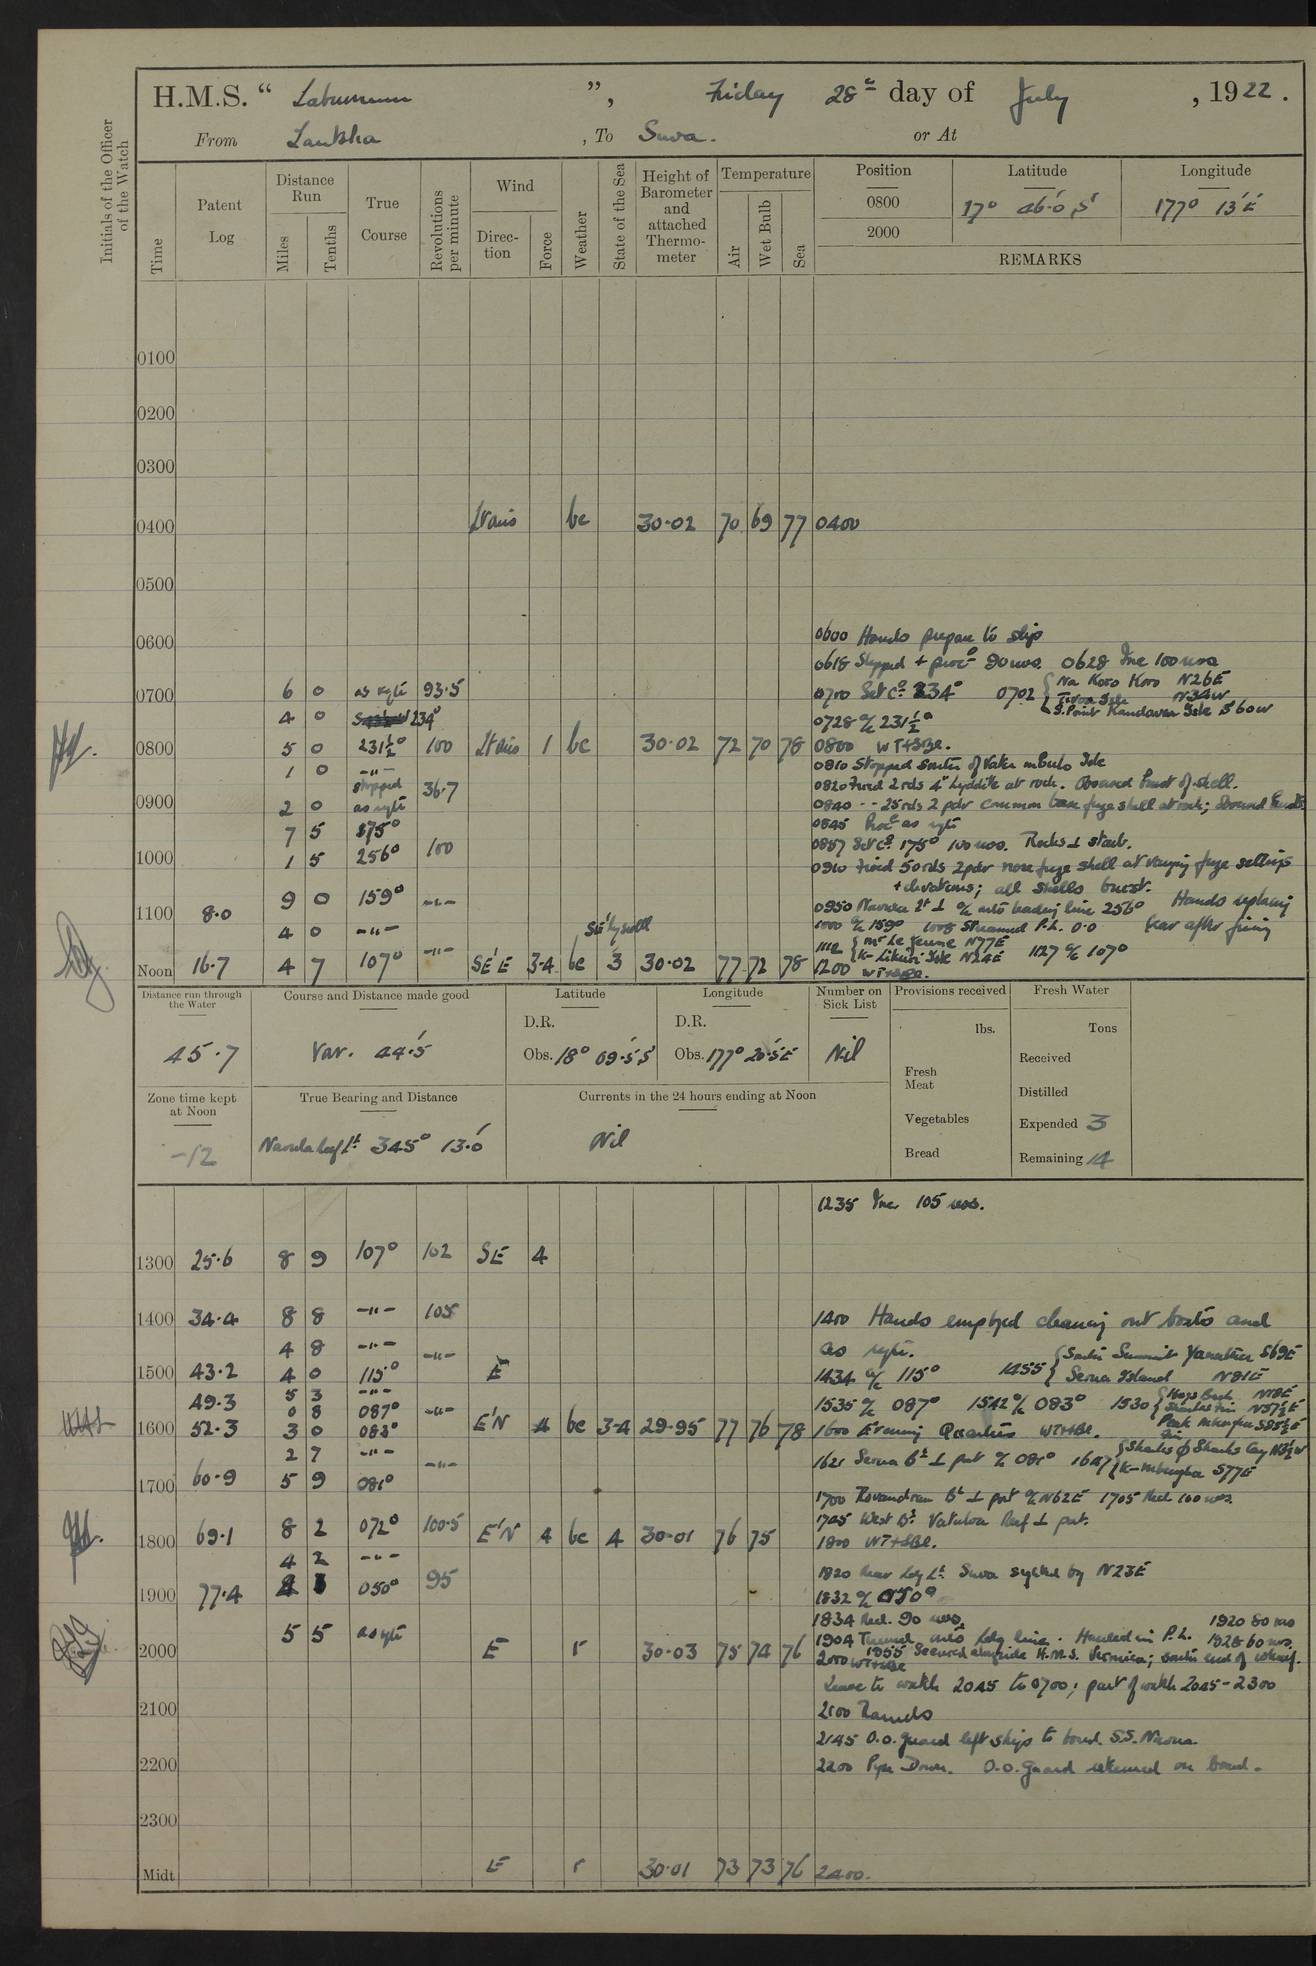 H.M.S. “ Laburnum ”, Friday 28th day of July , 1922.
From Lautoka , To Suva. or At
Initials of the Officer of the Watch
Time
Patent Log
Distance Run
Miles
Tenths
True Course
Revolutions per minute
Wind
Direction
Force
Weather
State of the Sea
Height of Barometer and attached Thermometer
Temperature
Air
Wet Bulb
Sea
Position Latitude Longitude
0800 17° 46·0 S 177° 13' E
2000
REMARKS
0100
0200
0300
0400 Lt airs bc 30·02 70 69 77 0400
0500
0600 0600 Hands prepare to slip
0618 Slipped + proc 90 revs. 0628 Inc 100 revs
0700 6 0 as reqte 93·5 0700 Set Co. 234° 0702 { Na Koro Koro N26E
Tivoa Isle N34W
4 0 234° S. Point Kandavu Isle S60W
0728 a/c 231½°
0800 5 0 231½° 100 Lt airs 1 bc 30·02 72 70 78 0800 WT+SBe.
1 0 -"- 0810 Stopped South of Isle
stopped 36·7 0820 Fired 2 rds 4" Lyddite at rock. Observed burst of shell.
0900 2 0 as reqte 0840 -- 25 rds 2 pdr common base fuze shell at rock;
0845 Proc as reqte
7 5 175° 0857 Set Co. 175° 100 revs. Rocks ⊥ starb.
1000 1 5 256° 100 0910 Fired 50 rds 2 pdr nose fuze shell at varying fuze settings
+ elevations; all shells burst.
9 0 159° -"- 0950 Navula Lt ⊥ a/c into leading line 256° Hands replacing
1100 8·0 1000 a/c 159° 1008 Streamed P.L. 0·0 gear after firing
4 0 -"- SE'ly swell 1112 { Mt Le Jeune N77E
K-Likuri Isle N24E 1127 a/c 107°
Noon 16·7 4 7 107° -"- SE'E 3-4 bc 3 30·02 77 72 78 1200 WT+SBe.
Distance run through the Water
45·7
Course and Distance made good
Var. 44·5
Latitude
D.R.
Obs. 18° 09·5 S
Longitude
D.R.
Obs. 177° 20·5 E
Number on Sick List
Nil
Provisions received
lbs.
Fresh Meat
Vegetables
Bread
Fresh Water
Tons
Received
Distilled
Expended 3
Remaining 14
Zone time kept at Noon
-12
True Bearing and Distance
Navula Reef Lt 345° 13·0
Currents in the 24 hours ending at Noon
Nil
1235 Inc. 105 revs.
1300 25·6 8 9 107° 102 SE 4
1400 34·4 8 8 -"- 105 1400 Hands employed cleaning out boats and
4 8 -"- -"- as reqte.
1500 43·2 4 0 115° E 1434 a/c 115° 1455 { South Summit S69E
Serua Island N81E
49·3 5 3 -"-
0 8 087° -"- 1535 a/c 087° 1542 a/c 083° 1530
1600 52·3 3 0 083° E'N 4 bc 3-4 29·95 77 76 78 1600 Evening Quarters WT+SBe.
2 7 -"- -"- 1621 Serua Bt ⊥ port a/c 081° 1647 { K-Mbengha S77E
1700 60·9 5 9 081°
1700 Rovandrau Bt ⊥ port a/c N62E 1705 Red. 100 revs.
1745 West Bt Vatuloa Reef ⊥ port.
1800 69·1 8 2 072° 100·5 E'N 4 bc 4 30·01 76 75 1800 WT+SBe.
4 2 -"- 1820 Rear Ldg Lt Suva sighted by N23E
1900 77·4 050° 95 1832 a/c 050°
1834 Red. 90 revs. 1920 80 revs
5 5 as reqte 1904 Turned into Ldg line. Hauled in P.L. 1928 60 revs.
2000 E r 30·03 75 74 76 1955 Secured alongside H.M.S. Veronica; south end of wharf.
2000 WT+SBe
Leave to watch 2045 to 0700; part of watch 2045-2300
2100 2100 Rounds
2145 O.O. Guard left ship to board S.S. Niagara
2200 2200 Pipe Down. O.O. Guard returned on board.
2300
Midt E r 30·01 73 73 76 2400.